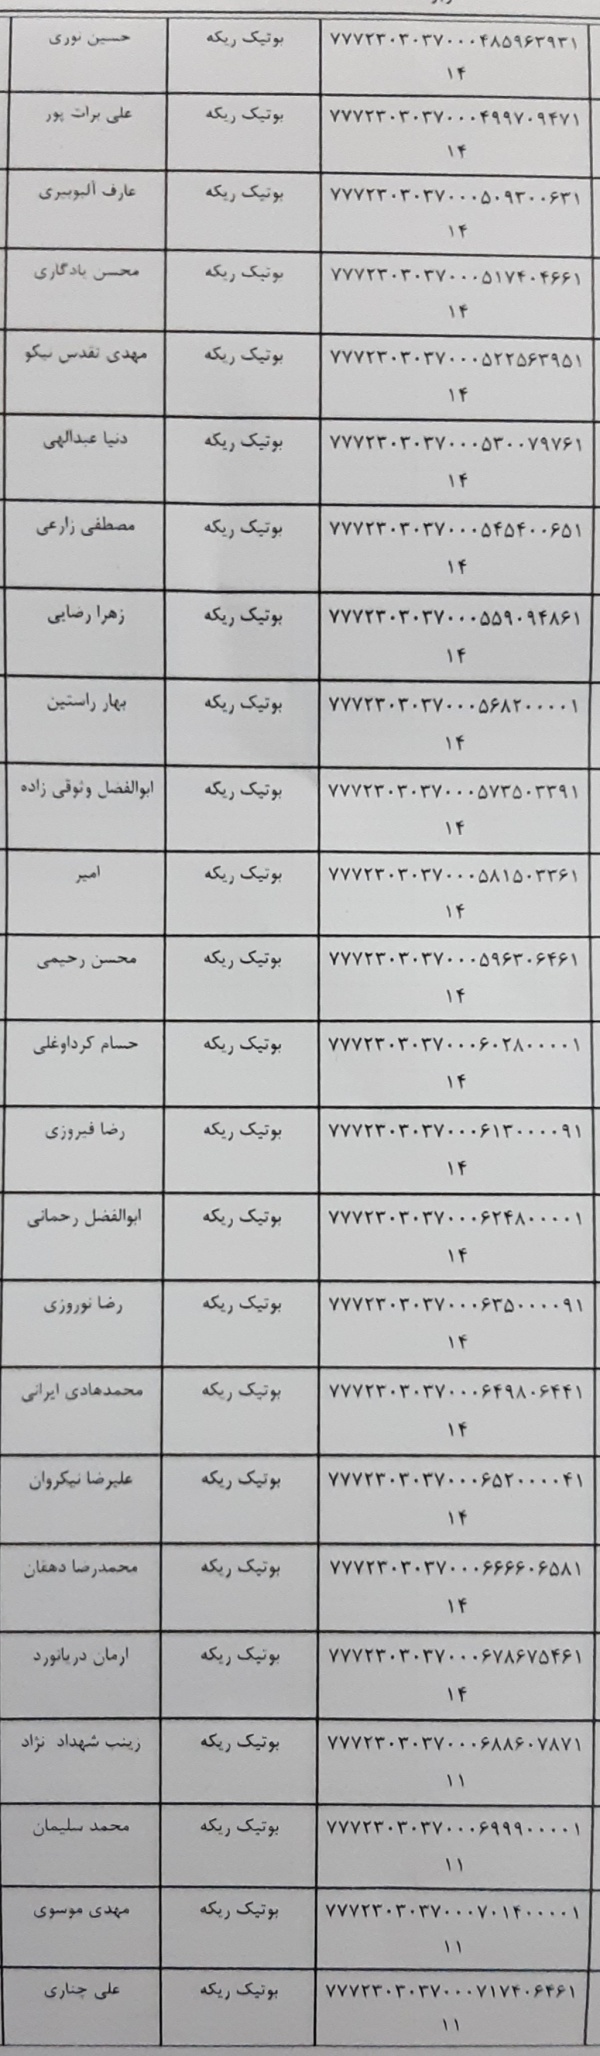 ۷۷۷۲۳۰۳۰۳۷۰۰۰۴۸۵۹۶۳۹۳۱ بوتیک ریکه حسین نوری
۱۴
۷۷۷۲۳۰۳۰۳۷۰۰۰۴۹۹۷۰۹۴۷۱ بوتیک ریکه علی برات پور
۱۴
۷۷۷۲۳۰۳۰۳۷۰۰۰۵۰۹۳۰۰۶۳۱ بوتیک ریکه عارف آلبوبیری
۱۴
۷۷۷۲۳۰۳۰۳۷۰۰۰۵۱۷۴۰۴۶۶۱ بوتیک ریکه محسن یادگاری
۱۴
۷۷۷۲۳۰۳۰۳۷۰۰۰۵۲۲۵۶۳۹۵۱ بوتیک ریکه مهدی تقدس نیکو
۱۴
۷۷۷۲۳۰۳۰۳۷۰۰۰۵۳۰۰۷۹۷۶۱ بوتیک ریکه دنیا عبدالهی
۱۴
۷۷۷۲۳۰۳۰۳۷۰۰۰۵۴۵۴۰۰۶۵۱ بوتیک ریکه مصطفی زارعی
۱۴
۷۷۷۲۳۰۳۰۳۷۰۰۰۵۵۹۰۹۴۸۶۱ بوتیک ریکه زهرا رضایی
۱۴
۷۷۷۲۳۰۳۰۳۷۰۰۰۵۶۸۲۰۰۰۰۱ بوتیک ریکه بهار راستین
۱۴
۷۷۷۲۳۰۳۰۳۷۰۰۰۵۷۳۵۰۳۳۹۱ بوتیک ریکه ابوالفضل وثوقی زاده
۱۴
۷۷۷۲۳۰۳۰۳۷۰۰۰۵۸۱۵۰۳۳۶۱ بوتیک ریکه امیر
۱۴
۷۷۷۲۳۰۳۰۳۷۰۰۰۵۹۶۳۰۶۴۶۱ بوتیک ریکه محسن رحیمی
۱۴
۷۷۷۲۳۰۳۰۳۷۰۰۰۶۰۲۸۰۰۰۰۱ بوتیک ریکه حسام کرداوغلی
۱۴
۷۷۷۲۳۰۳۰۳۷۰۰۰۶۱۳۰۰۰۰۹۱ بوتیک ریکه رضا فیروزی
۱۴
۷۷۷۲۳۰۳۰۳۷۰۰۰۶۲۴۸۰۰۰۰۱ بوتیک ریکه ابوالفضل رحمانی
۱۴
۷۷۷۲۳۰۳۰۳۷۰۰۰۶۳۵۰۰۰۰۹۱ بوتیک ریکه رضا نوروزی
۱۴
۷۷۷۲۳۰۳۰۳۷۰۰۰۶۴۹۸۰۶۴۴۱ بوتیک ریکه محمدهادی ایرانی
۱۴
۷۷۷۲۳۰۳۰۳۷۰۰۰۶۵۲۰۰۰۰۴۱ بوتیک ریکه علیرضا نیکروان
۱۴
۷۷۷۲۳۰۳۰۳۷۰۰۰۶۶۶۶۰۶۵۸۱ بوتیک ریکه محمدرضا دهقان
۱۴
۷۷۷۲۳۰۳۰۳۷۰۰۰۶۷۸۶۷۵۴۶۱ بوتیک ریکه آرمان دریانورد
۱۴
۷۷۷۲۳۰۳۰۳۷۰۰۰۶۸۸۶۰۷۸۷۱ بوتیک ریکه زینب شهداد نژاد
۱۱
۷۷۷۲۳۰۳۰۳۷۰۰۰۶۹۹۹۰۰۰۰۱ بوتیک ریکه محمد سلیمان
۱۱
۷۷۷۲۳۰۳۰۳۷۰۰۰۷۰۱۴۰۰۰۰۱ بوتیک ریکه مهدی موسوی
۱۱
۷۷۷۲۳۰۳۰۳۷۰۰۰۷۱۷۴۰۶۴۶۱ بوتیک ریکه علی چناری
۱۱